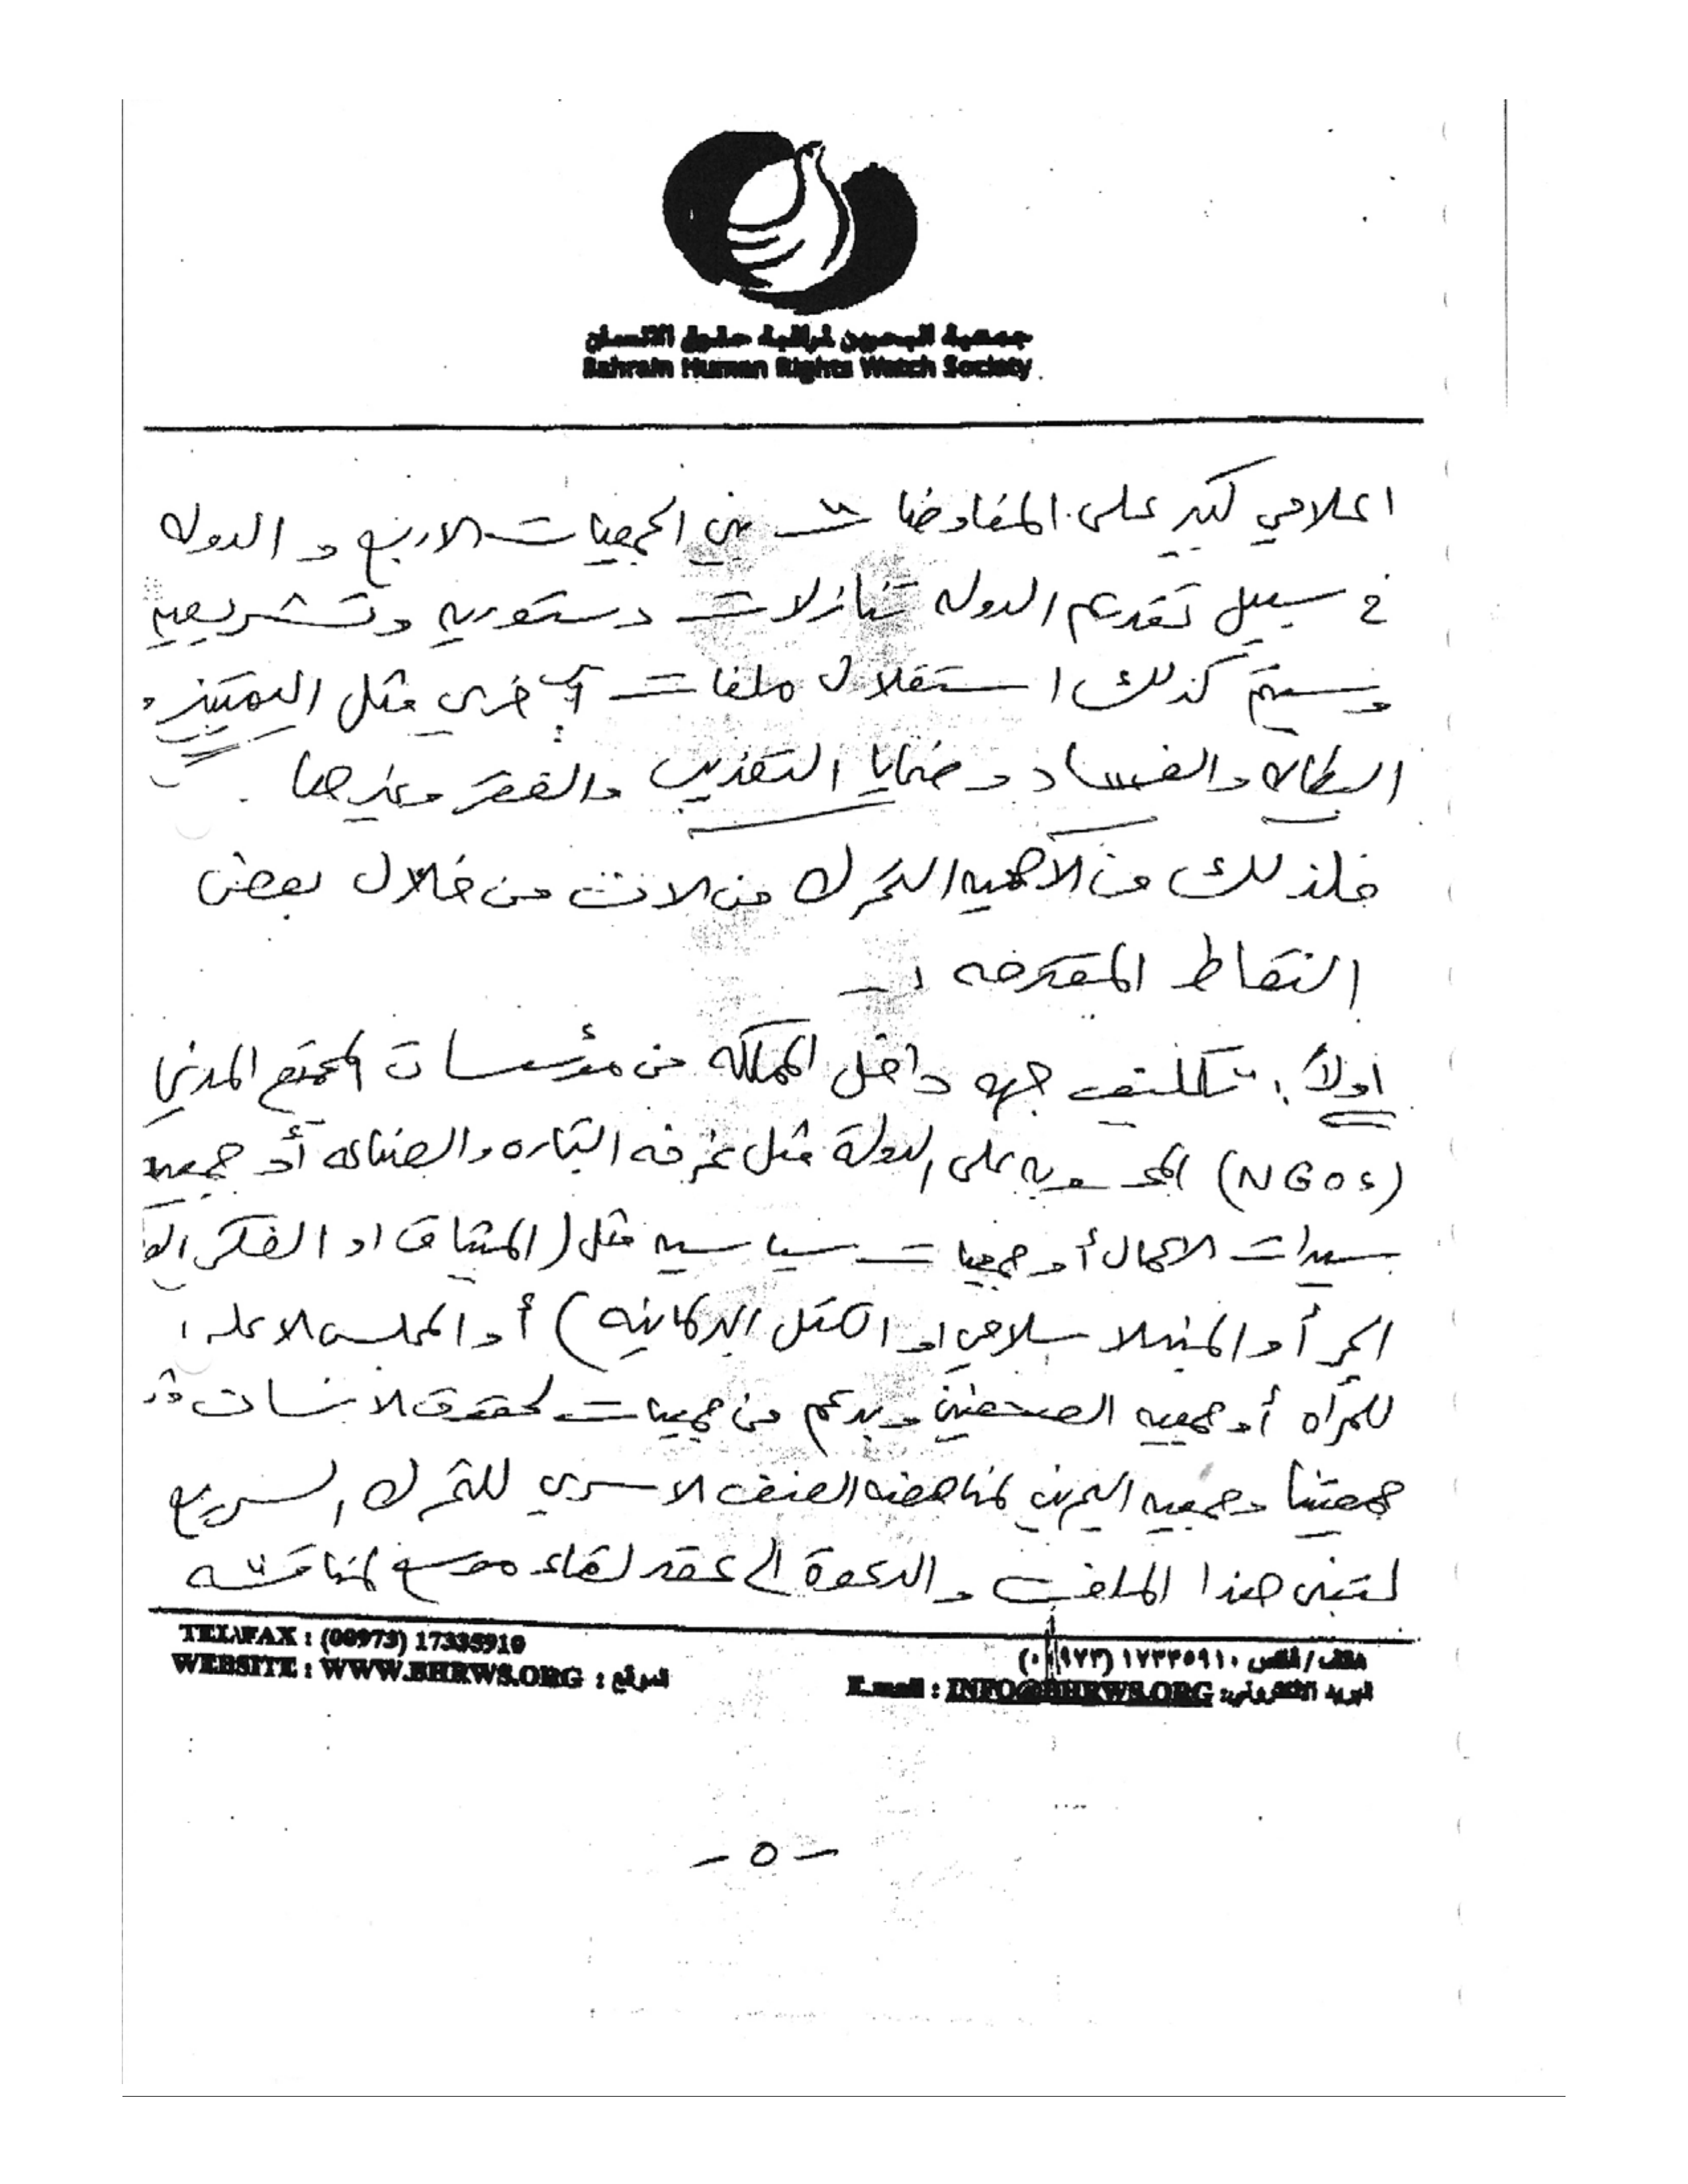 جمعية البحرين لمراقبة حقوق الانسان
Bahrain Human Rights Watch Society
اعلامي كبير على المفاوضات بين الجمعيات الاربع و الدوله
في سبيل تقديم الدوله تنازلات دستوريه وتشريعيه
وسيتم كذلك استغلال ملفات أخرى مثل التمييز و
البطاله والفساد وضحايا التعذيب والفقر وغيرها .
فلذلك من الاهميه التحرك من الان من خلال بعض
النقاط المقترحه :-
اولاً : تكليف جهه داخل المملكه من مؤسسات المجتمع المدني
(NGOs) المحسوبه على الدولة مثل غرفه التجاره والصناعه أو جمعيه
سيدات الاعمال أو جمعيات سياسيه مثل (الميثاق او الفكر الو
الحر أو المنبر الاسلامي او الكتل البرلمانيه) أو المجلس الاعلى
للمرأه أو جمعيه الصحفيين وبدعم من جمعيات لحقوق الانسان مثل
جمعيتنا وجمعيه البحرين لمناهضه العنف الاسري للتحرك السريع
لتبني هذا الملف والدعوة الى عقد لقاء موسع لمناقشه
TEL\FAX : (00973) 17335910
هاتف / فاكس ١٧٣٣٥٩١٠ (٠٠٩٧٣)
WEBSITE : WWW.BHRWS.ORG : الموقع
E.mail : INFO@BHRWS.ORG :البريد الالكتروني
- ٥ -